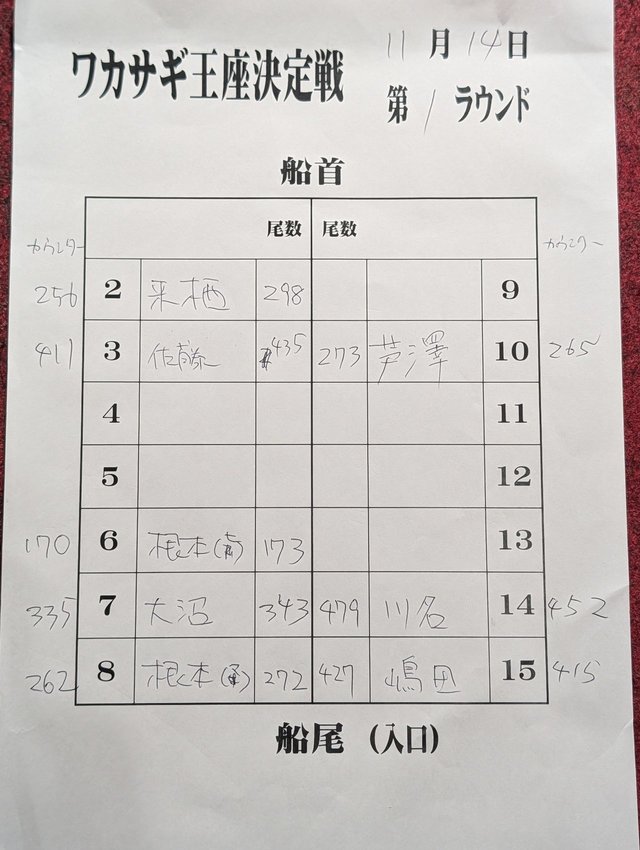 ワカサギ王座決定戦
11月14日
第1ラウンド
船首
尾数 尾数
カウンター カウンター
256 2 来栖 298 9
411 3 佐藤 435 273 芦澤 10 265
4 11
5 12
170 6 根本( ) 173 13
335 7 大沼 343 479 川名 14 452
262 8 根本( ) 272 427 嶋田 15 415
船尾 (入口)